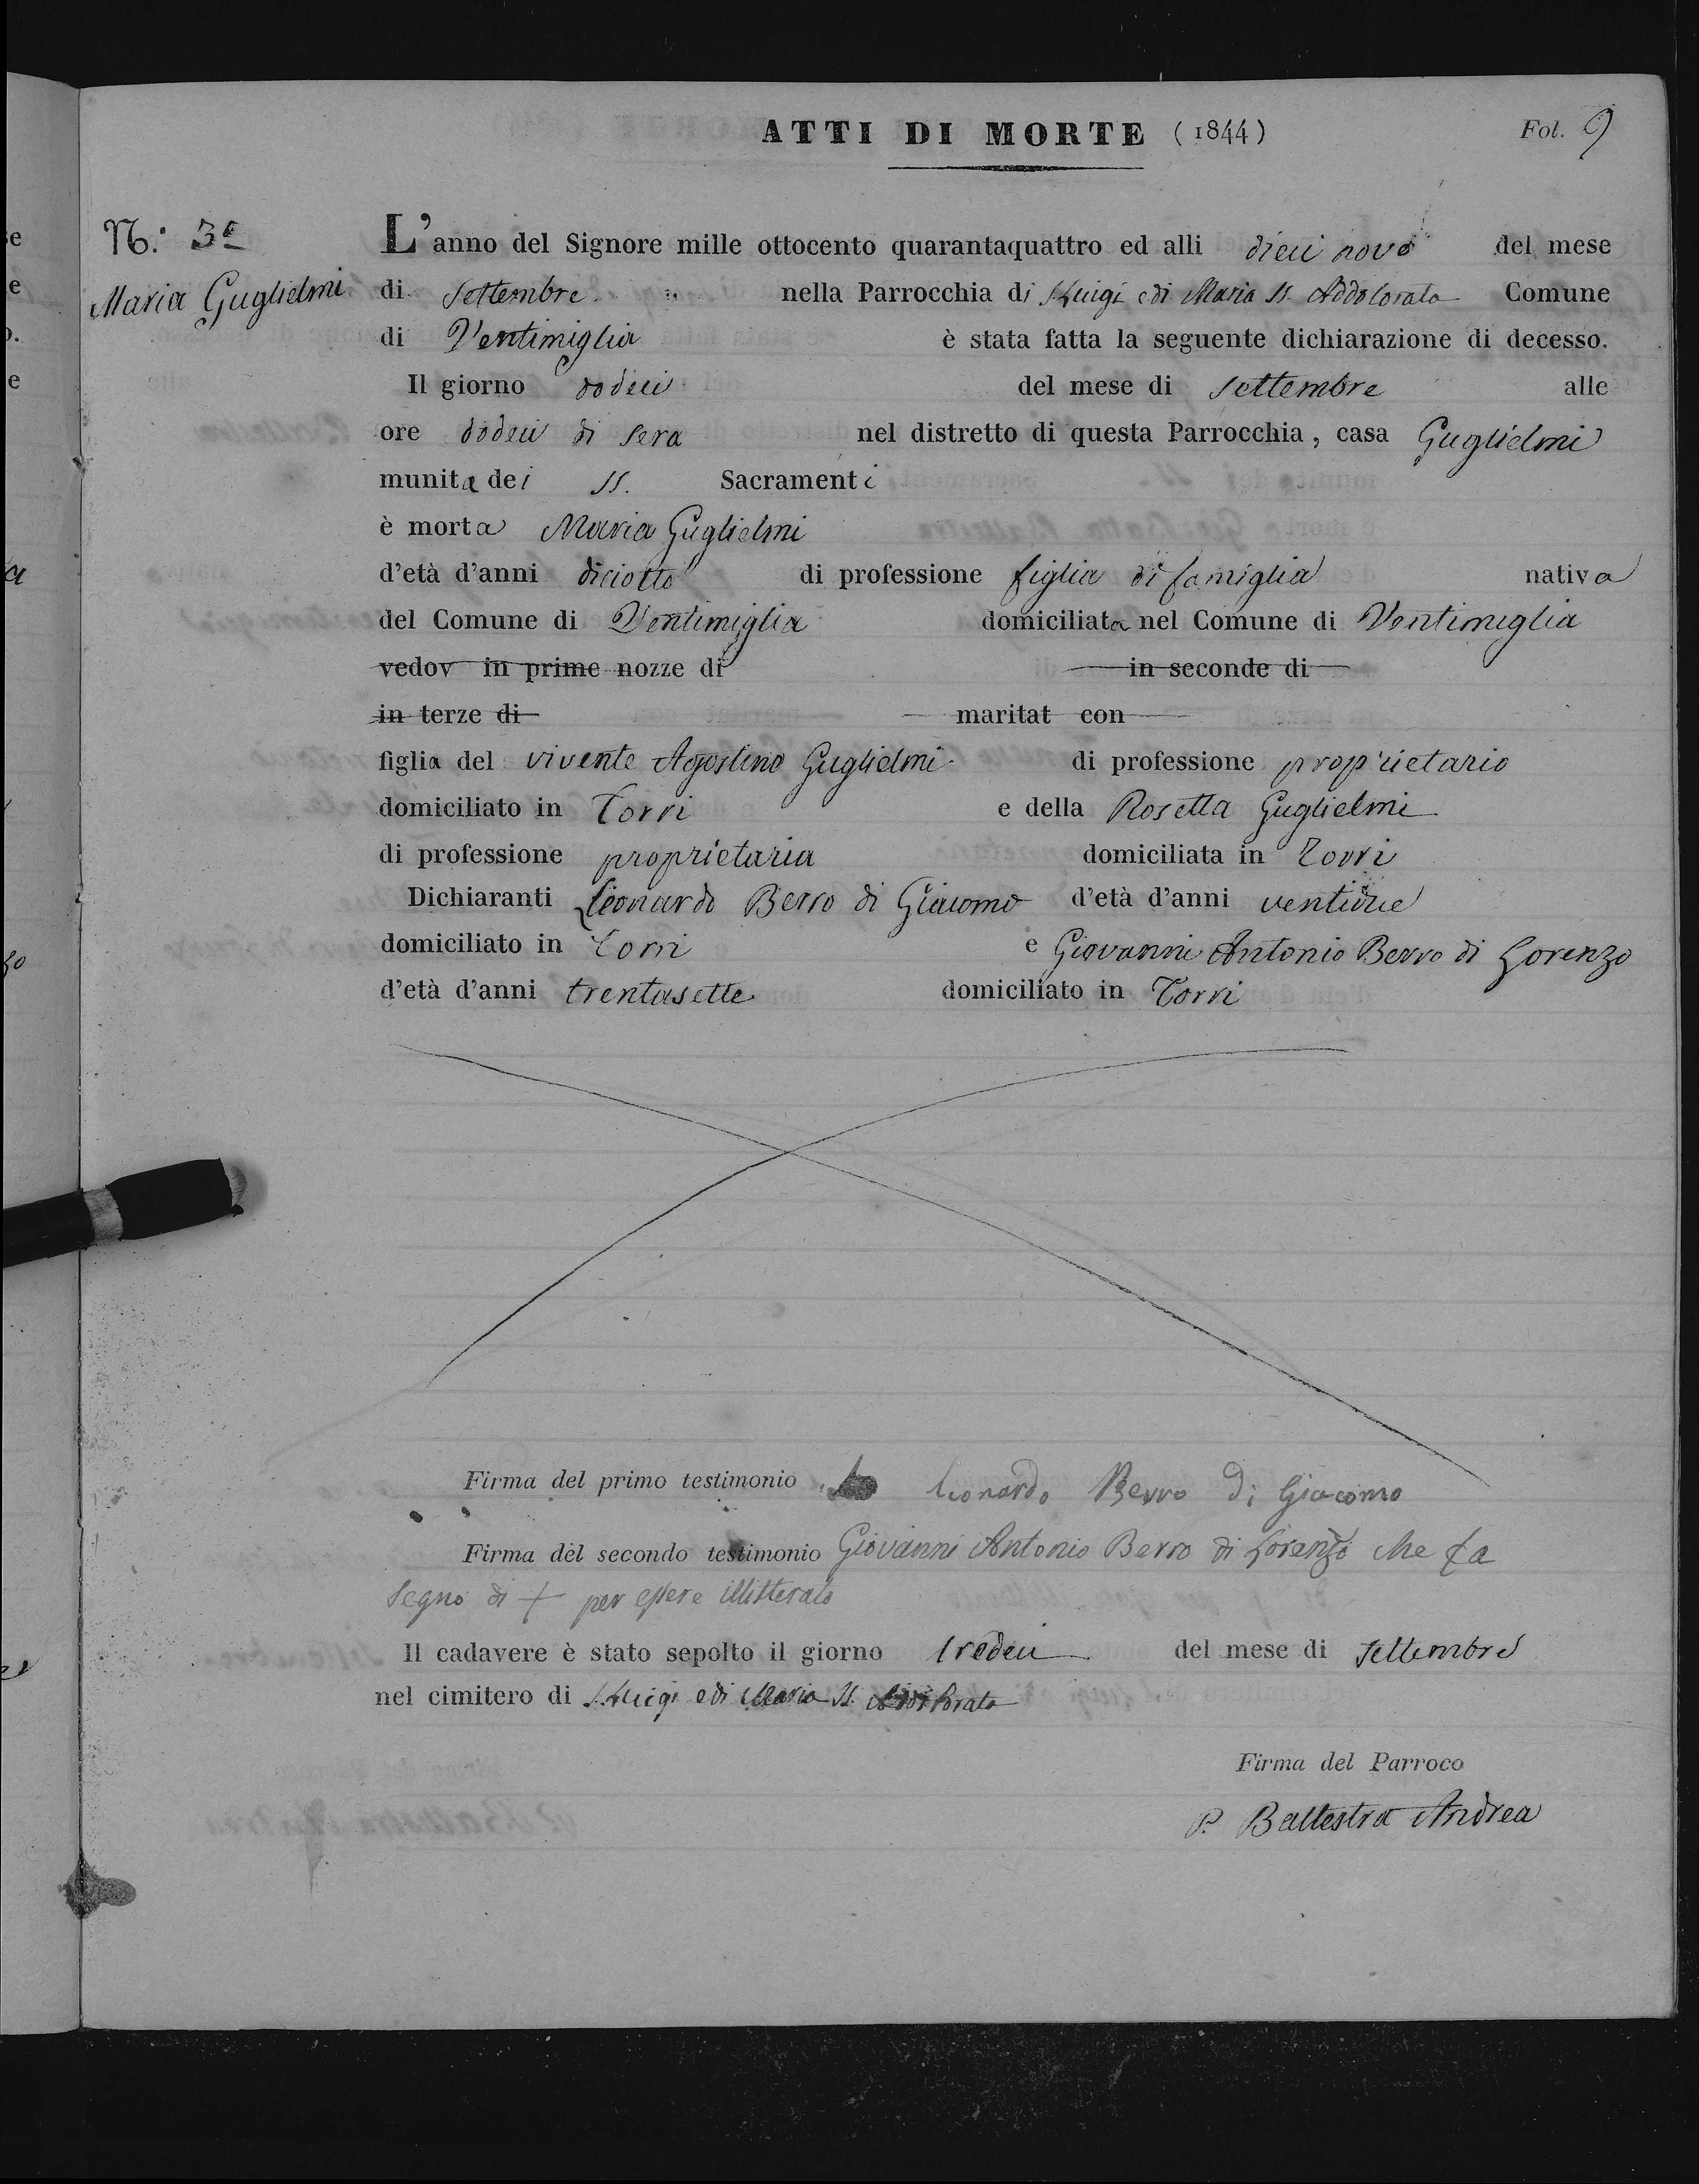 ATTI DI MORTE (1844) Fol. 9
N.º 3º
Maria Guglielmi
L'anno del Signore mille ottocento quarantaquattro ed alli dieci nove del mese
di Settembre nella Parrocchia di S. Luigi e di Maria SS. Addolorata Comune
di Ventimiglia è stata fatta la seguente dichiarazione di decesso.
Il giorno dodeci del mese di Settembre alle
ore dodeci di sera nel distretto di questa Parrocchia, casa Guglielmi
munita dei SS. Sacramenti
è morta Maria Guglielmi
d'età d'anni diciotto di professione figlia di famiglia nativa
del Comune di Ventimiglia domiciliata nel Comune di Ventimiglia
vedov in prime nozze di in seconde di
in terze di maritat con
figlia del vivente Agostino Guglielmi di professione proprietario
domiciliato in Torri e della Rosetta Guglielmi
di professione proprietaria domiciliata in Torri
Dichiaranti Leonardo Berro di Giacomo d'età d'anni ventidue
domiciliato in Torri e Giovanni Antonio Berro di Lorenzo
d'età d'anni trentasette domiciliato in Torri
Firma del primo testimonio Leonardo Berro Di Giacomo
Firma del secondo testimonio Giovanni Antonio Berro di Lorenzo che fa
segno di + per essere illitterato
Il cadavere è stato sepolto il giorno tredeci del mese di Settembre
nel cimitero di S. Luigi e di Maria SS. Addolorata
Firma del Parroco
P. Ballestra Andrea